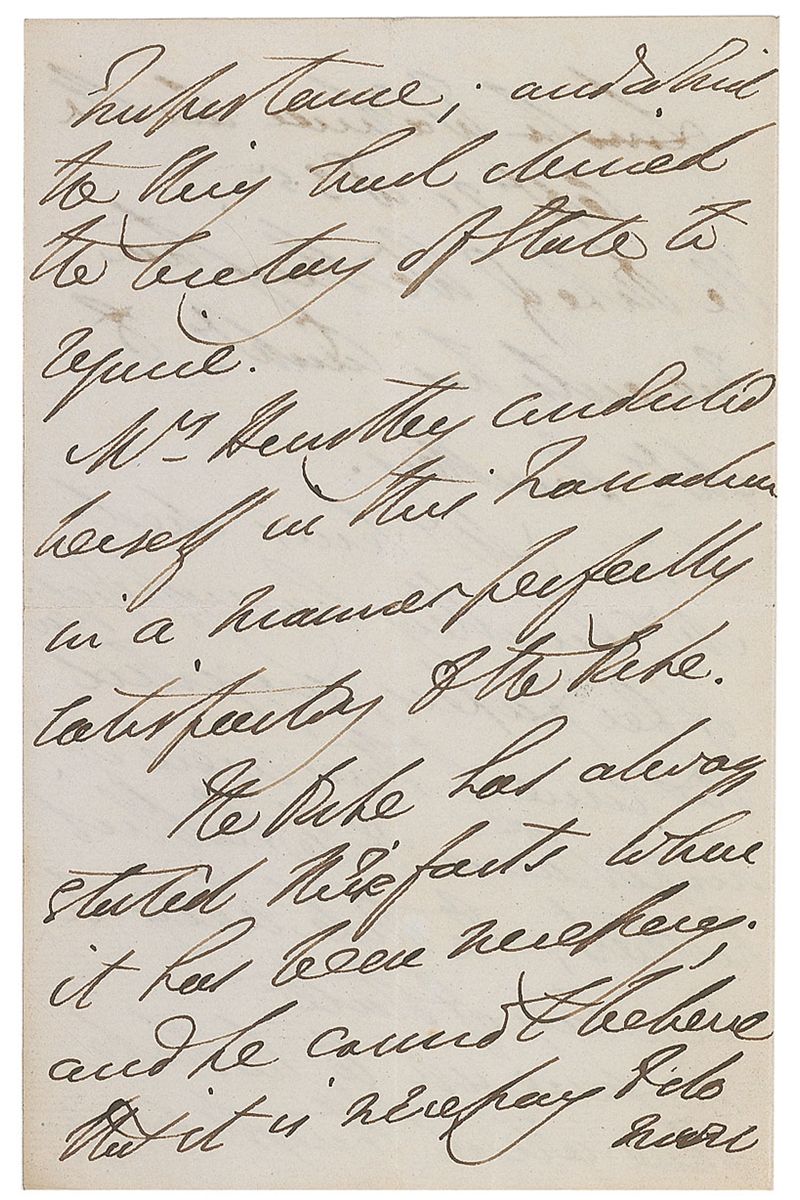 Importance; and which
the King had desired
the Secretary of State to
require.
Mrs Hensley conducted
herself in this Transaction
in a manner perfectly
satisfactory to the Duke.
The Duke has always
stated these facts where
it has been necessary;
and he cannot believe
that it is necessary to do
more